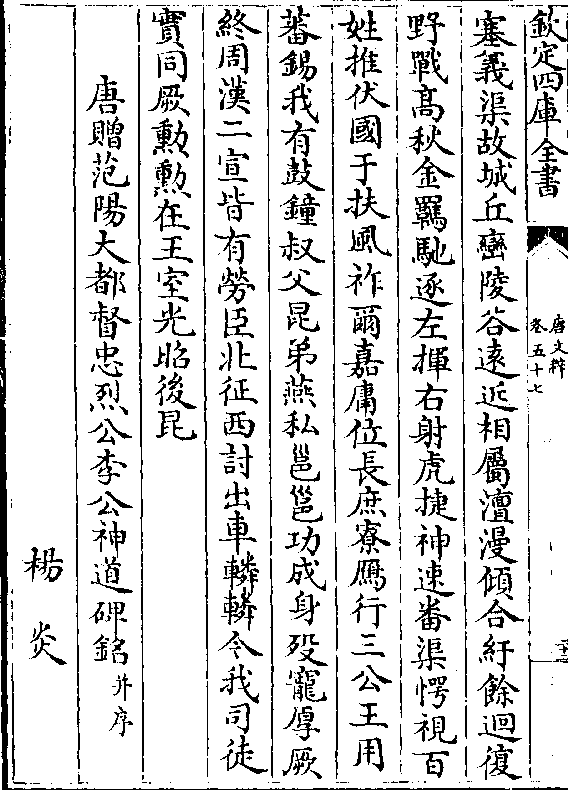 欽定四庫全書
唐文粹
卷五十七
塞義渠故城丘巒陵谷遠近相屬澶漫傾合紆餘迴復
野戰高秋金羈馳逐左揮右射虎捷神速番渠愕視百
姓推伏國于扶風祚爾嘉庸位長庶寮鴈行三公王用
蕃錫我有鼓鐘叔父昆弟燕私邕邕功成身歿寵厚厥
終周漢二宣皆有勞臣北征西討出車轔轔今我司徒
實同厥勲勲在王室光昭後昆
唐贈范陽大都督忠烈公李公神道碑銘并序
楊炎